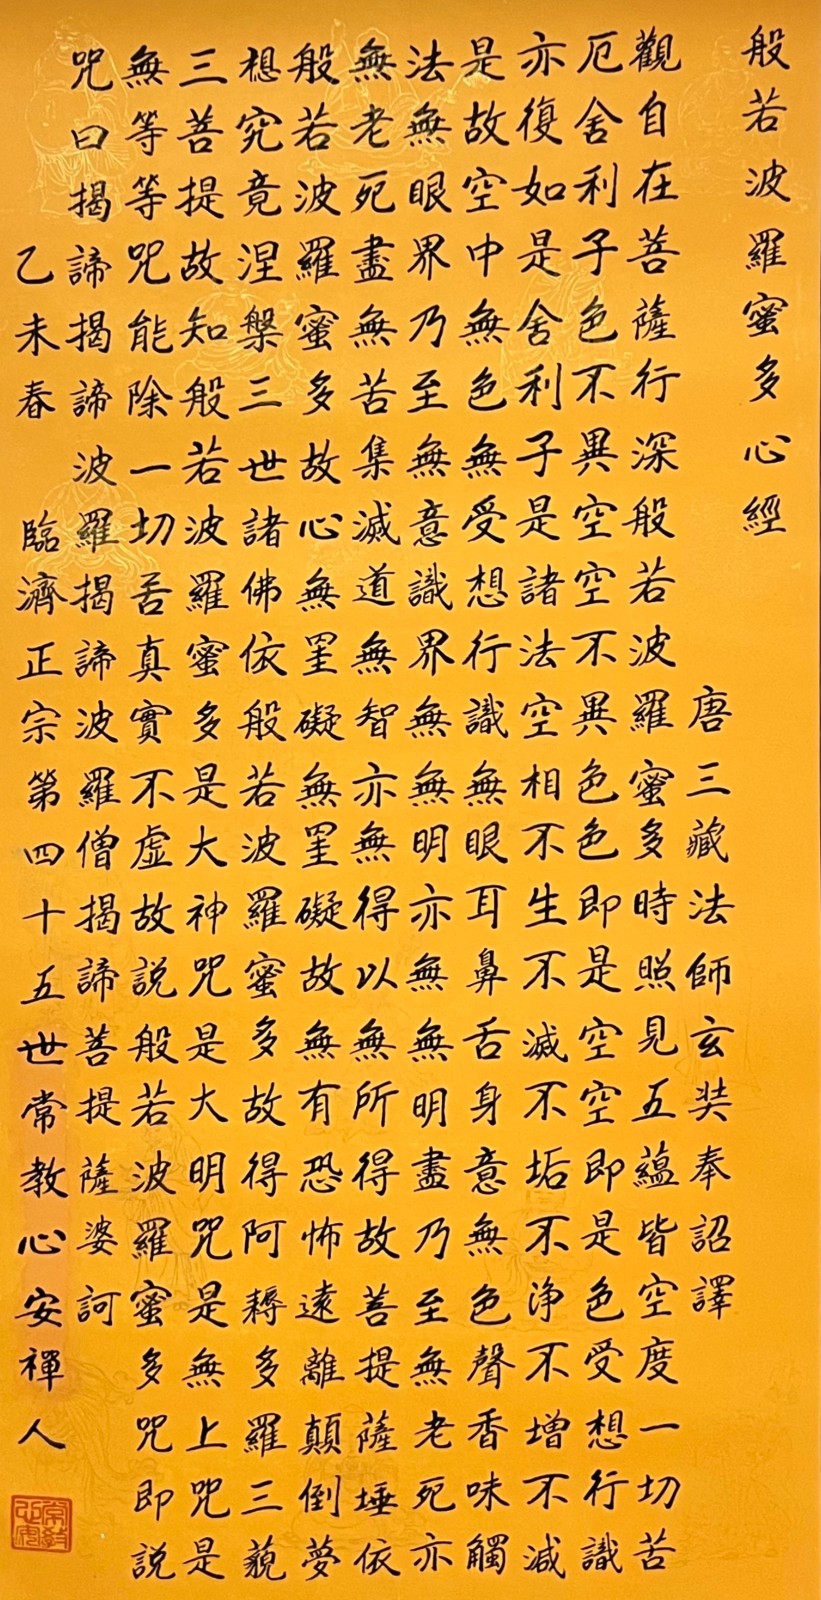 般若波羅蜜多心經
唐三藏法師玄奘奉詔譯
觀自在菩薩行深般若波羅蜜多時照見五蘊皆空度一切苦
厄舍利子色不異空空不異色色即是空空即是色受想行識
亦復如是舍利子是諸法空相不生不滅不垢不淨不增不減
是故空中無色無受想行識無眼耳鼻舌身意無色聲香味觸
法無眼界乃至無意識界無無明亦無無明盡乃至無老死亦
無老死盡無苦集滅道無智亦無得以無所得故菩提薩埵依
般若波羅蜜多故心無罣礙無罣礙故無有恐怖遠離顛倒夢
想究竟涅槃三世諸佛依般若波羅蜜多故得阿耨多羅三藐
三菩提故知般若波羅蜜多是大神咒是大明咒是無上咒是
無等等咒能除一切苦真實不虛故說般若波羅蜜多咒即說
咒曰揭諦揭諦波羅揭諦波羅僧揭諦菩提薩婆訶
乙未春 臨濟正宗第四十五世常教心安禪人
常教心安